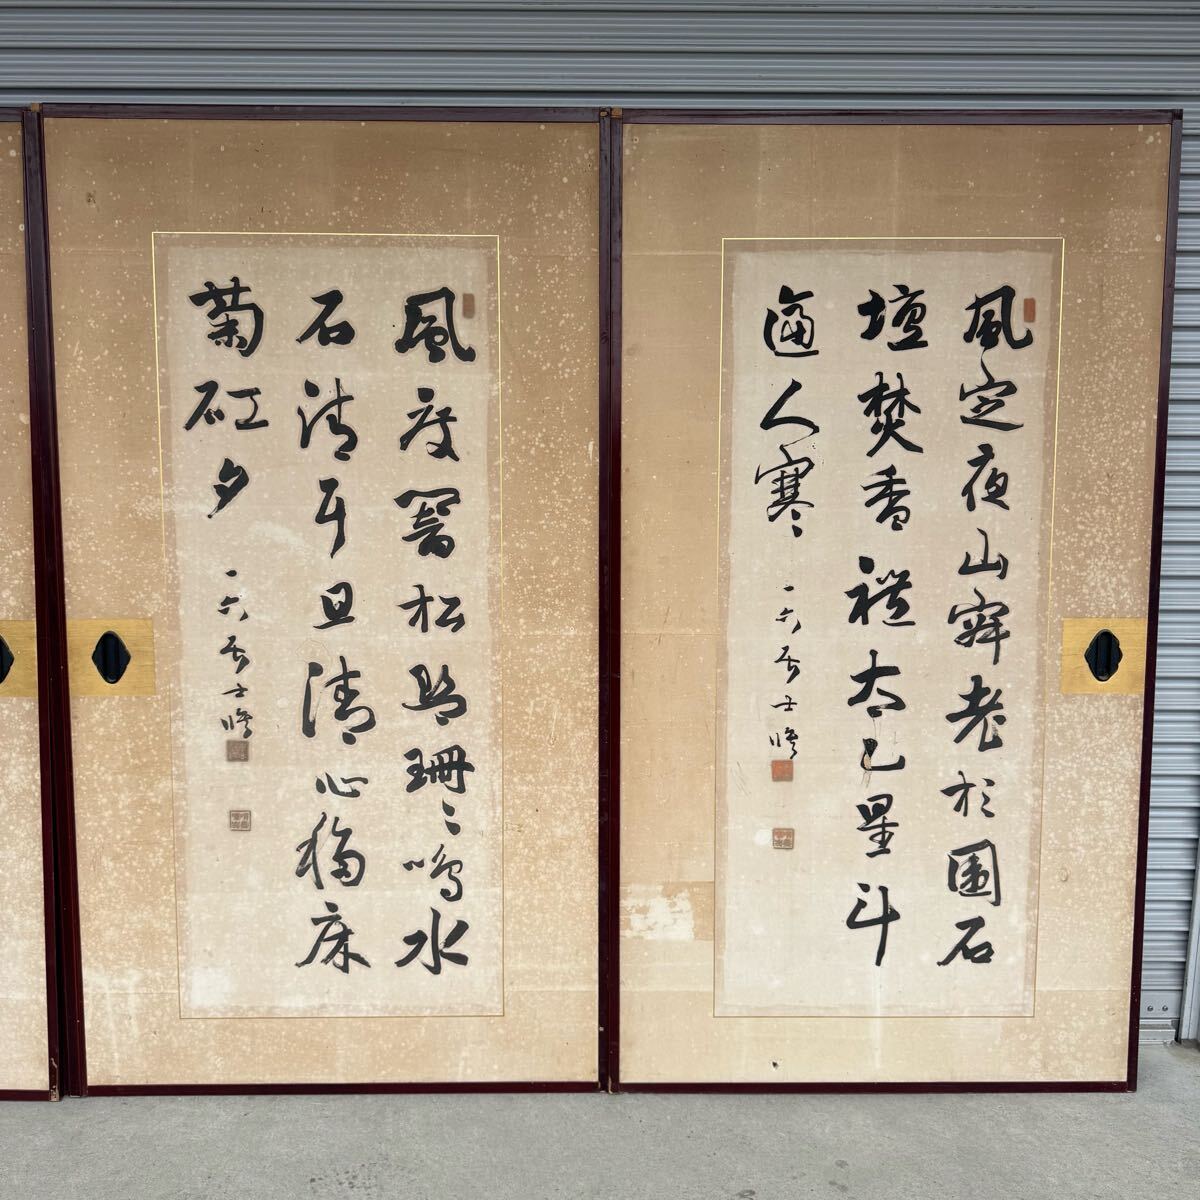 風定夜山寂老松圍石
壇焚香禮太乙星斗
逼人寒
一六居士脩
風度響松珊〻鳴水
石清耳且清心移床
菊矼夕
一六居士脩